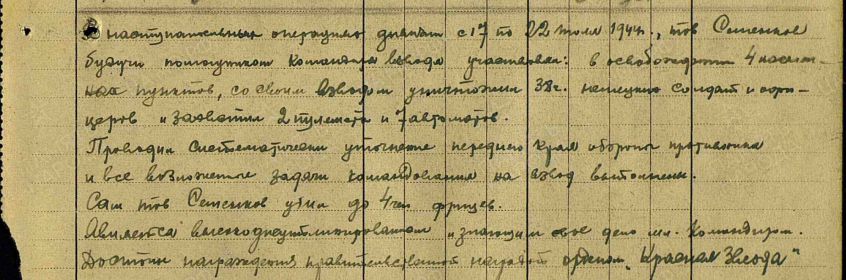 В наступательных операциях дивизии с 17 по 22 июля 1944г., тов Семенков
будучи помощником командира взвода участвовал: в освобождении 4 населен-
ных пунктов, со своим взводом уничтожили 38 ч. немецких солдат и офи-
церов и захватили 2 пулемета и 7 автоматов.
Проводил систематически уточнение переднего края обороны противника
и все возложенные задачи командования на взвод выполнены.
Сам тов Семенков убил до 4 чел фрицев.
Является высокодисциплинированным и знающим свое дело мл. командиром.
Достоин награждения правительственной наградой орденом "Красная Звезда"